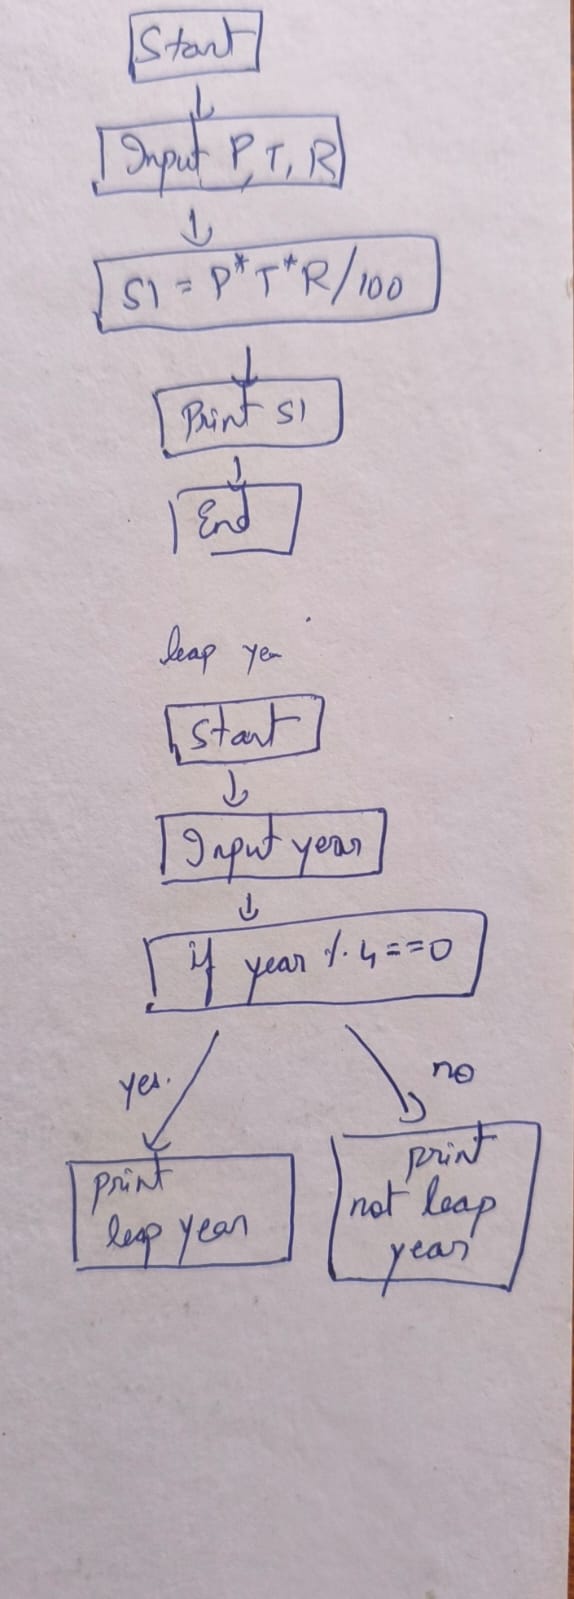 Start
Input P, T, R
SI = P*T*R/100
Print SI
End
leap yea
Start
Input year
if year % 4 == 0
yes.
no
print
leap year
print
not leap
year